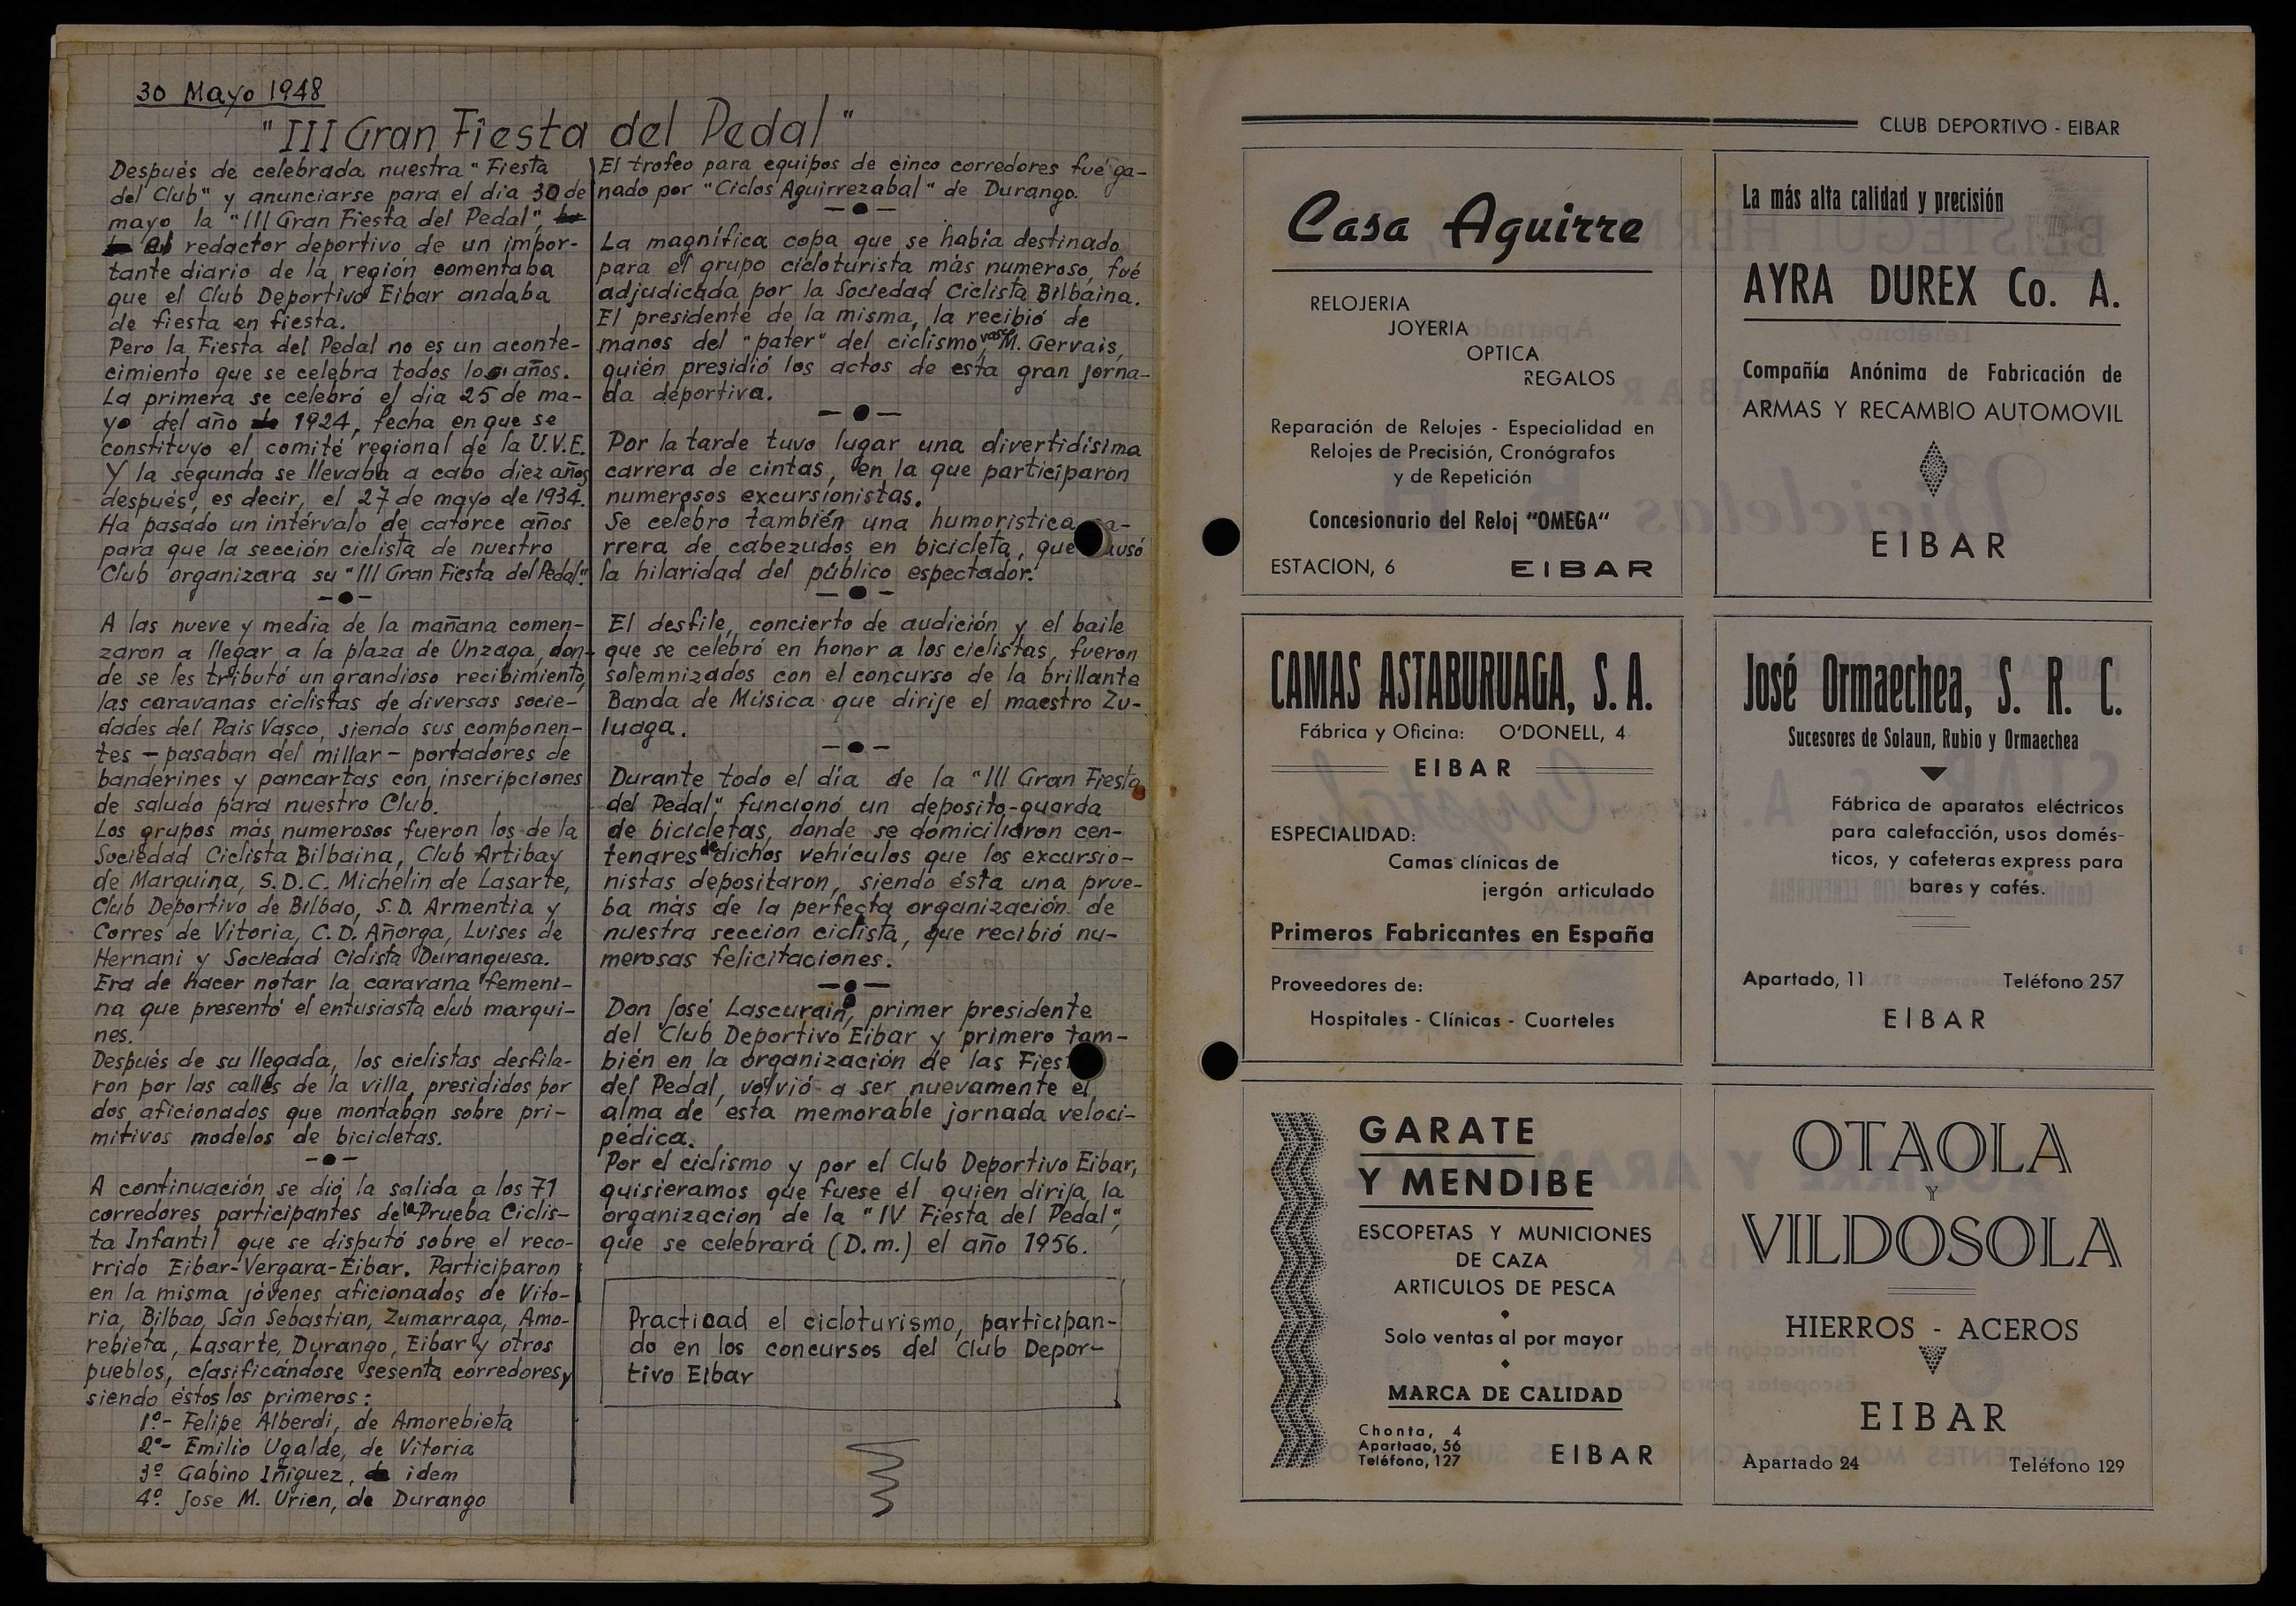 30 Mayo 1948
"III Gran Fiesta del Pedal"
Después de celebrada nuestra "Fiesta
del Club" y anunciarse para el dia 30 de
mayo la "III Gran Fiesta del Pedal",
el redactor deportivo de un impor-
tante diario de la región comentaba
que el Club Deportivo Eibar andaba
de fiesta en fiesta.
Pero la Fiesta del Pedal no es un aconte-
cimiento que se celebra todos los años.
La primera se celebró el dia 25 de ma-
yo del año 1924, fecha en que se
constituyo el comité regional de la U.V.E.
Y la segunda se llevaba a cabo diez años
después, es decir, el 27 de mayo de 1934.
Ha pasado un intérvalo de catorce años
para que la sección ciclista de nuestro
Club organizara su "III Gran Fiesta del Pedal".
A las nueve y media de la mañana comen-
zaron a llegar a la plaza de Unzaga, don-
de se les tributó un grandioso recibimiento,
las caravanas ciclistas de diversas socie-
dades del Pais Vasco, siendo sus componen-
tes - pasaban del millar - portadores de
banderines y pancartas con inscripciones
de saludo para nuestro Club.
Los grupos más numerosos fueron los de la
Sociedad Ciclista Bilbaina, Club Artibay
de Marquina, S.D.C. Michelin de Lasarte,
Club Deportivo de Bilbao, S.D. Armentia y
Corres de Vitoria, C.D. Añorga, Luises de
Hernani y Sociedad Ciclista Duranguesa.
Era de hacer notar la caravana femeni-
na que presentó el entusiasta club marqui-
nes.
Después de su llegada, los ciclistas desfila-
ron por las calles de la villa, presididos por
dos aficionados que montaban sobre pri-
mitivos modelos de bicicletas.
A continuación se dió la salida a los 71
corredores participantes de la Prueba Ciclis-
ta Infantil que se disputó sobre el reco-
rrido Eibar-Vergara-Eibar. Participaron
en la misma jóvenes aficionados de Vito-
ria, Bilbao, San Sebastian, Zumarraga, Amo-
rebieta, Lasarte, Durango, Eibar y otros
pueblos, clasificándose sesenta corredores,
siendo éstos los primeros:
1º- Felipe Alberdi, de Amorebieta
2º- Emilio Ugalde, de Vitoria
3º Gabino Iñiguez, idem
4º. Jose M. Urien, de Durango
El trofeo para equipos de cinco corredores fué ga-
nado por "Ciclos Aguirrezabal" de Durango.
La magnífica copa que se había destinado
para el grupo cicloturista más numeroso, fué
adjudicada por la Sociedad Ciclista Bilbaina.
El presidente de la misma, la recibió de
manos del "pater" del ciclismo vasco M. Gervais,
quién presidió los actos de esta gran jorna-
da deportiva.
Por la tarde tuvo lugar una divertidísima
carrera de cintas, en la que participaron
numerosos excursionistas.
Se celebro también una humoristica ca-
rrera de cabezudos en bicicleta, que causó
la hilaridad del público espectador.
El desfile, concierto de audición y el baile
que se celebró en honor a los ciclistas, fueron
solemnizados con el concurso de la brillante
Banda de Música que dirije el maestro Zu-
luaga.
Durante todo el día de la "III Gran Fiesta
del Pedal" funcionó un deposito-guarda
de bicicletas, donde se domiciliaron cen-
tenares de dichos vehículos que los excursio-
nistas depositaron, siendo ésta una prue-
ba más de la perfecta organización de
nuestra sección ciclista, que recibió nu-
merosas felicitaciones.
Don José Lascurain, primer presidente
del Club Deportivo Eibar y primero tam-
bién en la organización de las Fiest
del Pedal, volvió a ser nuevamente el
alma de esta memorable jornada veloci-
pédica.
Por el ciclismo y por el Club Deportivo Eibar,
quisieramos que fuese él quien dirija la
organizacion de la "IV Fiesta del Pedal",
que se celebrará (D.m.) el año 1956.
Practicad el cicloturismo, participan-
do en los concursos del Club Depor-
tivo Eibar
CLUB DEPORTIVO - EIBAR
Casa Aguirre
RELOJERIA
JOYERIA
OPTICA
REGALOS
Reparación de Relojes - Especialidad en
Relojes de Precisión, Cronógrafos
y de Repetición
Concesionario del Reloj "OMEGA"
ESTACION, 6 EIBAR
La más alta calidad y precisión
AYRA DUREX Co. A.
Compañía Anónima de Fabricación de
ARMAS Y RECAMBIO AUTOMOVIL
EIBAR
CAMAS ASTABURUAGA, S. A.
Fábrica y Oficina: O'DONELL, 4
EIBAR
ESPECIALIDAD:
Camas clínicas de
jergón articulado
Primeros Fabricantes en España
Proveedores de:
Hospitales - Clínicas - Cuarteles
José Ormaechea, S. R. C.
Sucesores de Solaun, Rubio y Ormaechea
Fábrica de aparatos eléctricos
para calefacción, usos domés-
ticos, y cafeteras express para
bares y cafés.
Apartado, 11 Teléfono 257
EIBAR
GARATE
Y MENDIBE
ESCOPETAS Y MUNICIONES
DE CAZA
ARTICULOS DE PESCA
Solo ventas al por mayor
MARCA DE CALIDAD
Chonta, 4
Apartado, 56
Teléfono, 127
EIBAR
OTAOLA
Y
VILDOSOLA
HIERROS - ACEROS
EIBAR
Apartado 24 Teléfono 129